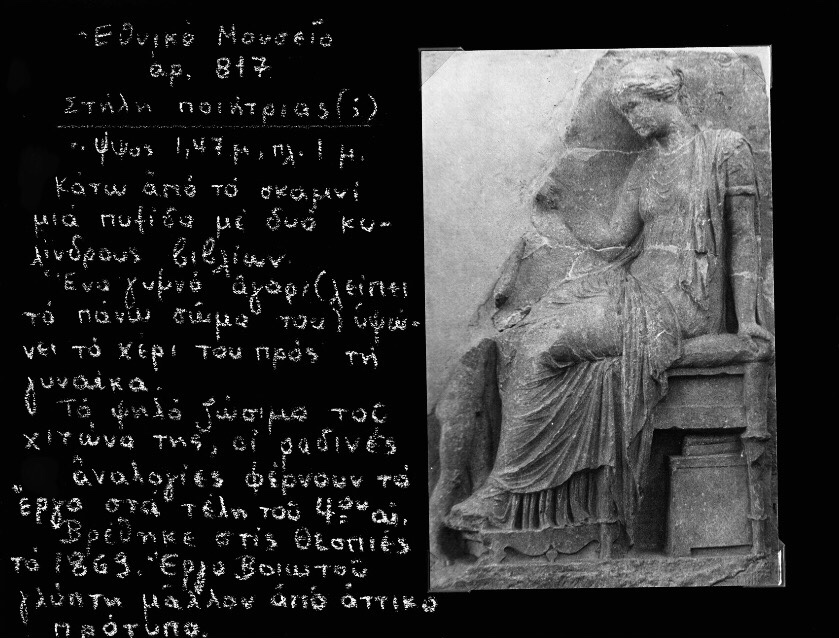 Ἐθνικό Μουσεῖο
ἀρ. 817
Στήλη ποιήτριας(;)
ὕψος 1,47 μ., πλ. 1 μ.
Κάτω ἀπό τό σκαμνί
μιά πυξίδα μέ δυό κυ-
λίνδρους βιβλίων.
Ἕνα γυμνό ἀγόρι (λείπει
τό πάνω σῶμα του) ὑψώ-
νει τό χέρι του πρός τή
γυναίκα.
Τό ψηλό ζώσιμο τοῦ
χιτώνα της, οἱ ραδινές
ἀναλογίες φέρνουν τό
ἔργο στά τέλη τοῦ 4ου αἰ.
Βρέθηκε στίς Θεσπιές
τό 1869. Ἔργο Βοιωτοῦ
γλύπτη μᾶλλον ἀπό ἀττικό
πρότυπο.